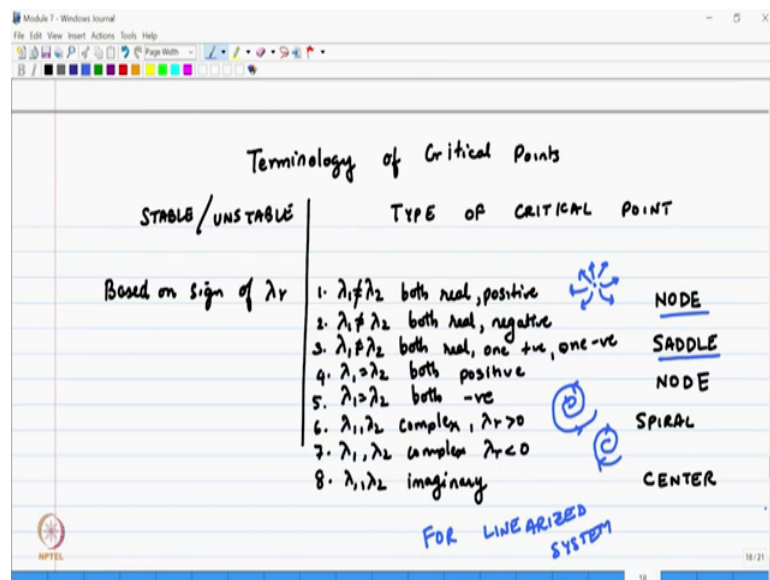 Module 7 - Windows Journal
File Edit View Insert Actions Tools Help
Page Width
B I
Terminology of Critical Points
STABLE/UNSTABLE TYPE OF CRITICAL POINT
Based on sign of λr
1. λ1≠λ2 both real, positive NODE
2. λ1≠λ2 both real, negative
3. λ1≠λ2 both real, one +ve, one -ve SADDLE
4. λ1=λ2 both positive NODE
5. λ1=λ2 both -ve
6. λ1,λ2 complex, λr>0 SPIRAL
7. λ1,λ2 complex λr<0
8. λ1,λ2 imaginary CENTER
FOR LINEARIZED
SYSTEM
NPTEL
18/21
18